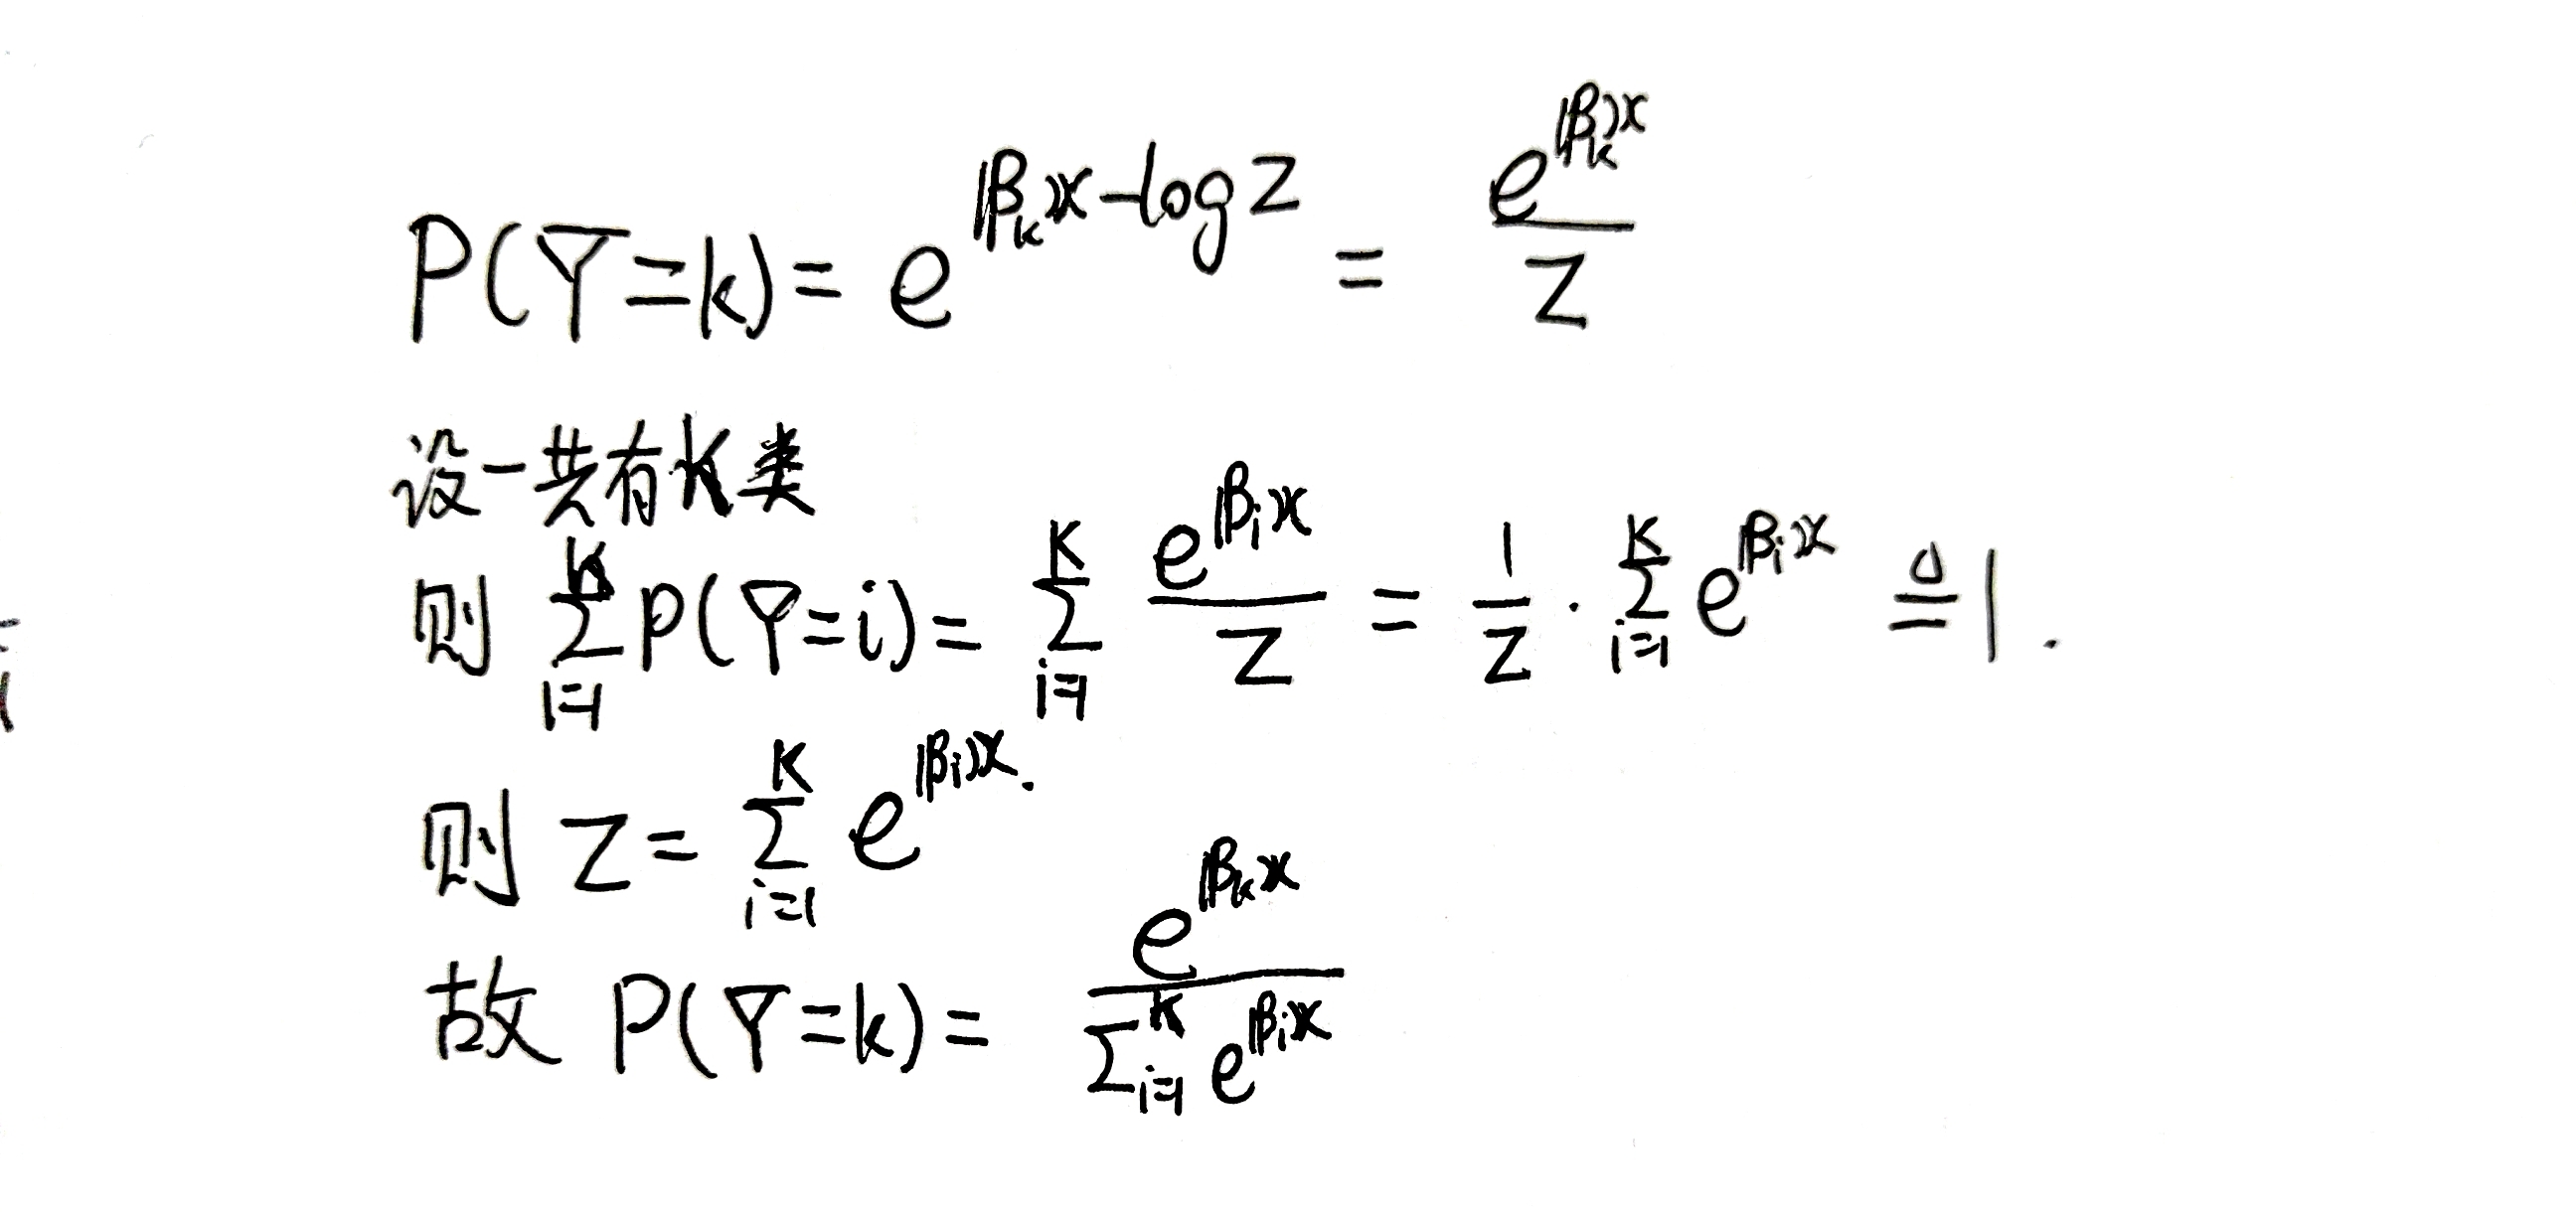 P(Y=k) = e^{𝛃_k 𝐱 - log Z} = \frac{e^{𝛃_k 𝐱}}{Z}
设一共有K类
则 \sum_{i=1}^{K} P(Y=i) = \sum_{i=1}^{K} \frac{e^{𝛃_i 𝐱}}{Z} = \frac{1}{Z} · \sum_{i=1}^{K} e^{𝛃_i 𝐱} ≜ 1.
则 Z = \sum_{i=1}^{K} e^{𝛃_i 𝐱}.
故 P(Y=k) = \frac{e^{𝛃_k 𝐱}}{\sum_{i=1}^{K} e^{𝛃_i 𝐱}}